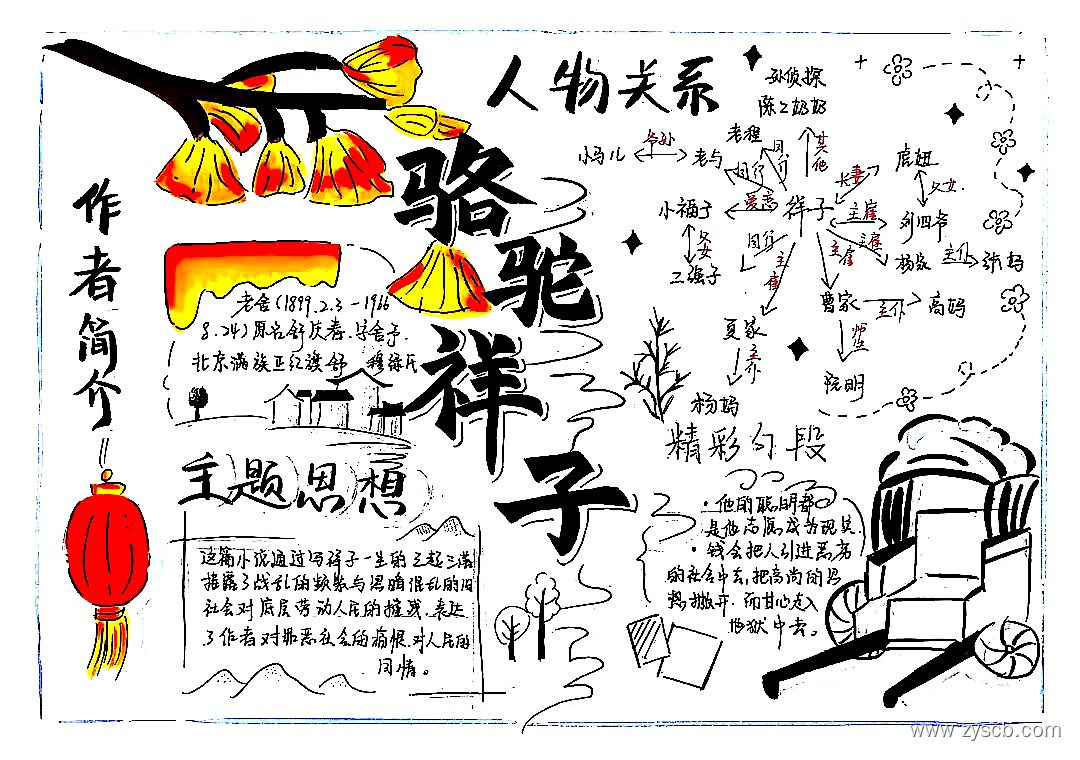 人物关系
孙侦探
陈二奶奶
其他
老程
同行
小马儿
爷孙
老马
同行
夫妻
虎妞
父女
刘四爷
主雇
祥子
爱恋
小福子
父女
二强子
同行
主雇
杨家
主仆
张妈
主雇
曹家
主仆
高妈
师生
阮明
主雇
夏家
主仆
杨妈
骆驼祥子
作者简介
老舍(1899.2.3-1966
8.24)原名舒庆春.字舍予.
北京满族正红旗舒 穆禄氏
主题思想
这篇小说通过写祥子一生的三起三落
揭露了战乱的频繁与黑暗混乱的旧
社会对底层劳动人民的摧残.表达
了作者对罪恶社会的痛恨.对人民的
同情。
精彩句段
·他的聪明都
是他志愿成为现实.
·钱会把人引进恶劣
的社会中去,把高尚的思
想撇开.而甘心走入
地狱中去。
www.zyscb.com